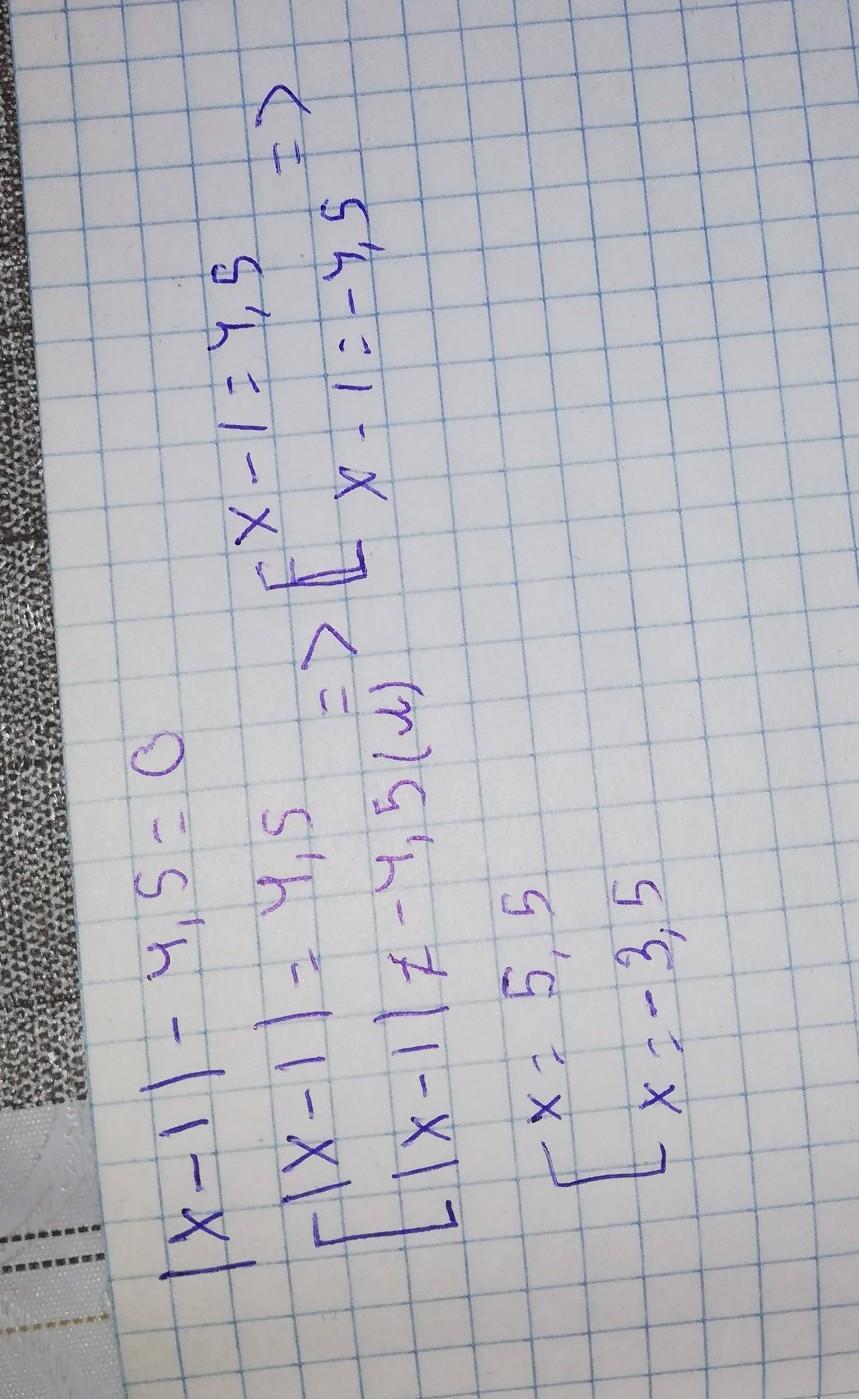 |x-1|-4,5=0
[|x-1|=4,5 => [x-1=4,5 =>
|x-1|≠-4,5(u) x-1=-4,5
[x=5,5
x=-3,5